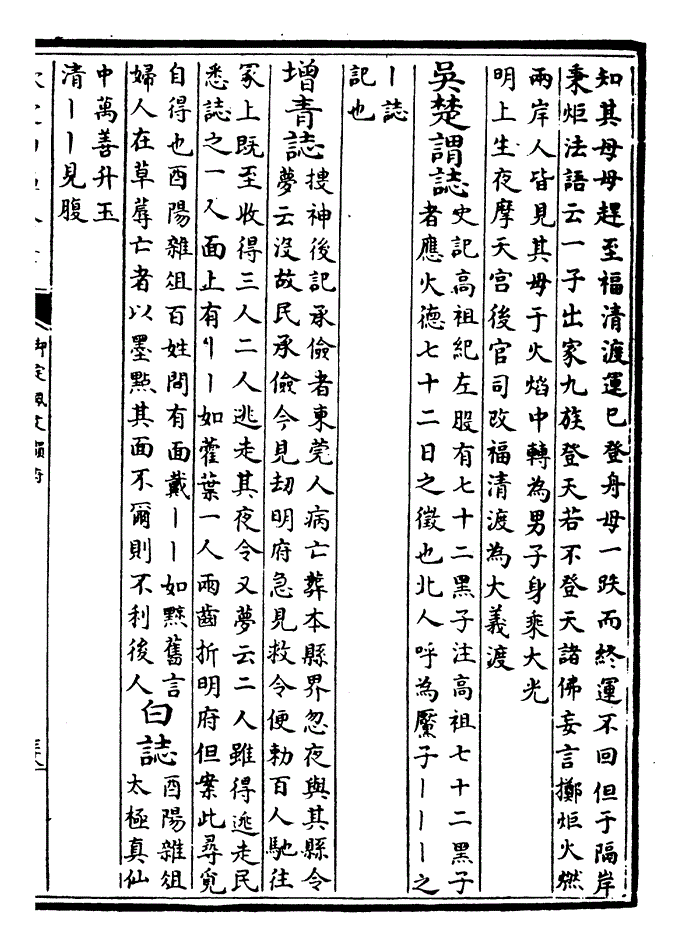 知其母母趕至福清渡運已登舟母一跌而終運不回但于隔岸
秉炬法語云一子出家九族登天若不登天諸佛妄言擲炬火燃
兩岸人皆見其母于火焰中轉為男子身乘大光
明上生夜摩天宮後官司改福清渡為大義渡
吳楚謂誌
史記高祖紀左股有七十二黑子注高祖七十二黑子
者應火德七十二日之徵也北人呼為黶子丨丨丨之
丨誌
記也
增青誌
搜神後記承儉者東莞人病亡葬本縣界忽夜與其縣令
夢云沒故民承儉今見刧明府急見救令便勅百人馳往
冢上既至收得三人二人逃走其夜令又夢云二人雖得逃走民
悉誌之一人面上有丨丨如藿葉一人兩齒折明府但案此尋覓
自得也酉陽雜俎百姓間有面戴丨丨如黥舊言
婦人在草蓐亡者以墨點其面不爾則不利後人
白誌
酉陽雜俎
太極真仙
中萬善升玉
清丨丨見腹
御定佩文韻府